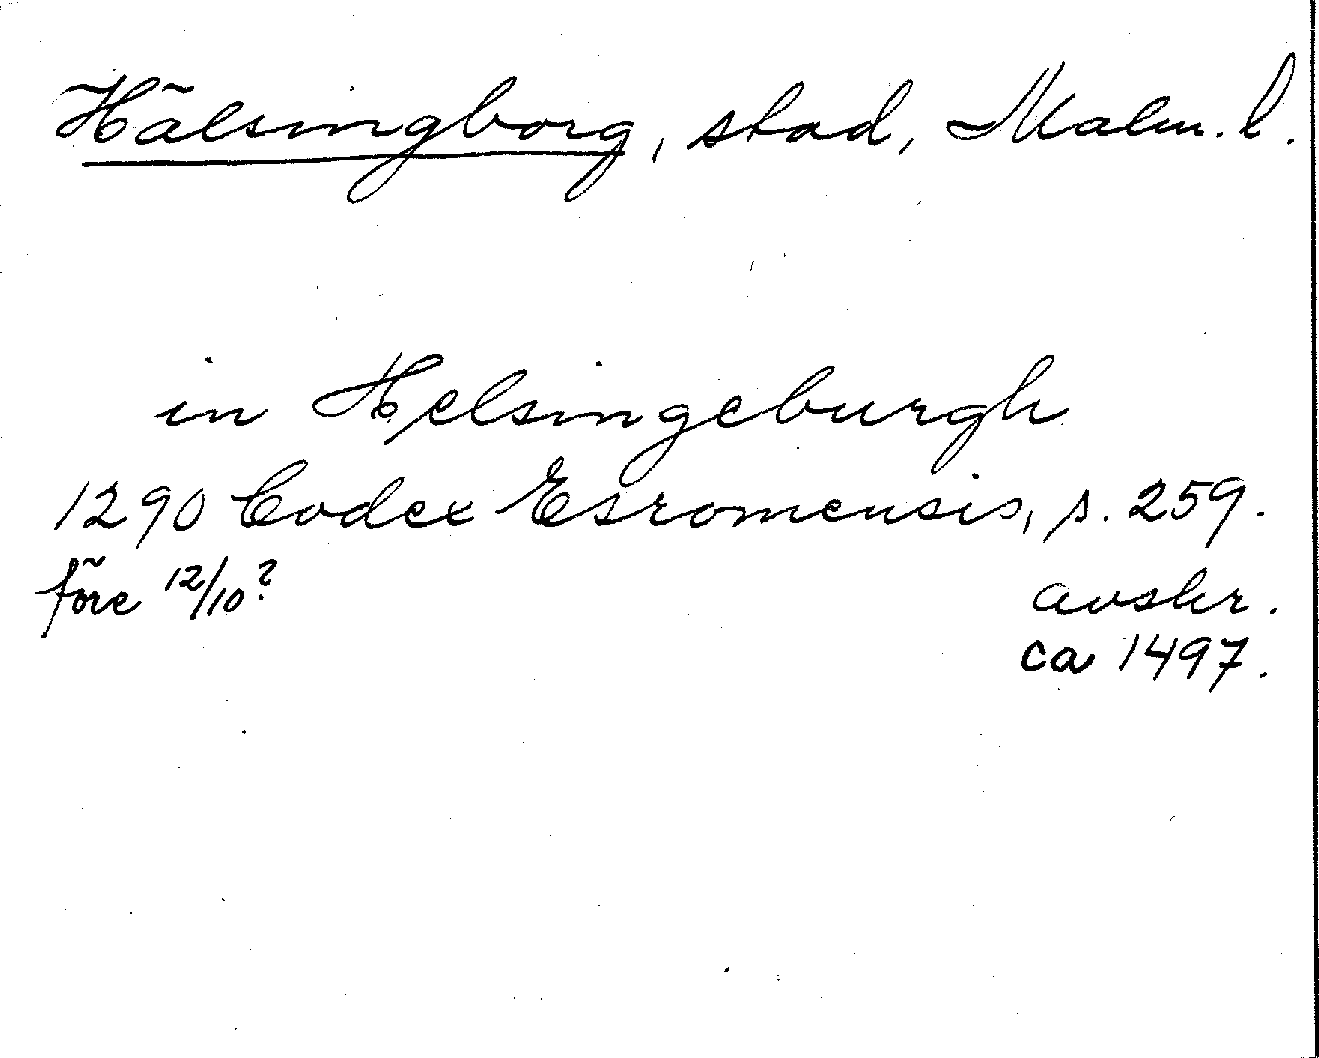 Hälsingborg, stad, Malm. l.
in Helsingeburgh
1290 Codex Esromensis, s. 259.
före 12/10? avskr.
ca 1497.